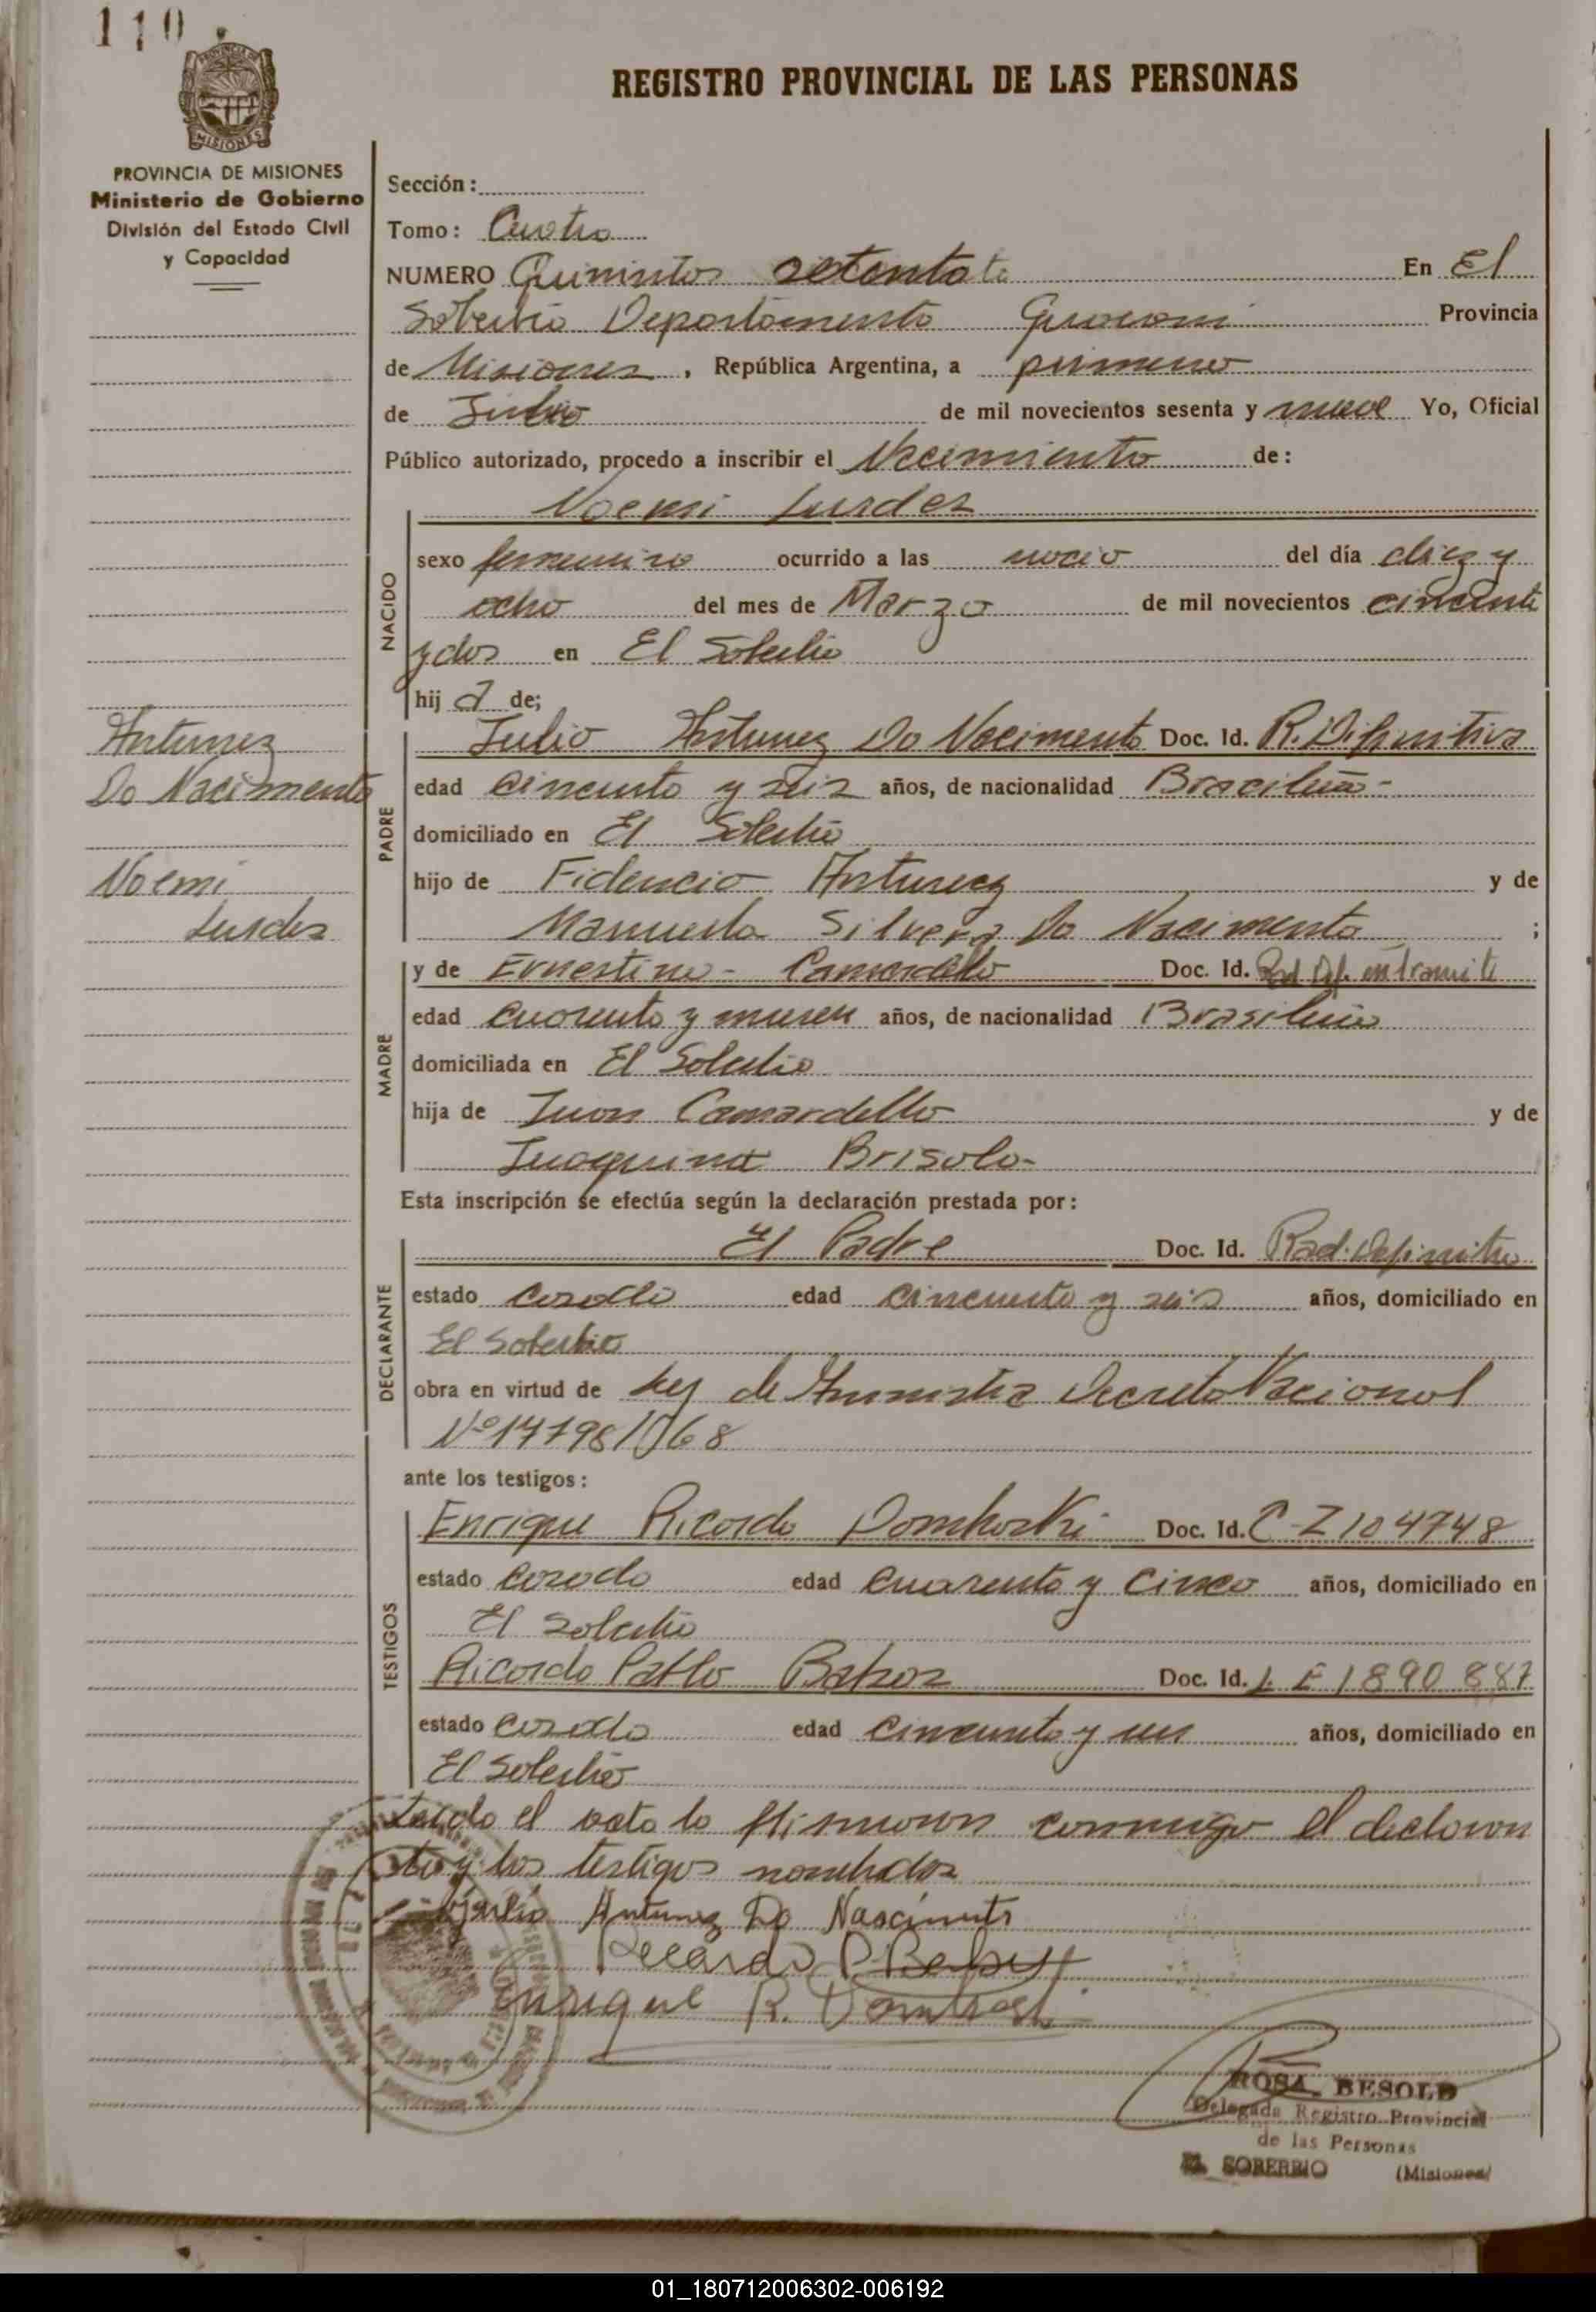 110
REGISTRO PROVINCIAL DE LAS PERSONAS
PROVINCIA DE MISIONES
Ministerio de Gobierno
División del Estado Civil
y Capacidad
Sección:
Tomo: Cuatro
NUMERO Quinientos En El
Soberbio Departamento Guarani Provincia
de Misiones, República Argentina, a primero
de Julio de mil novecientos sesenta y nueve Yo, Oficial
Público autorizado, procedo a inscribir el Nacimiento de:
Noemi Lurdes
NACIDO
sexo femenino ocurrido a las del día diez y
ocho del mes de Marzo de mil novecientos cincuenta
y dos en El Soberbio
hija de;
Antunez
Do Nacimento
Noemi
Lurdes
PADRE
Julio Antunez Do Nacimento Doc. Id. R. Difinitiva
edad cincuenta y seis años, de nacionalidad Bracileña-
domiciliado en El Soberbio
hijo de Fidencio Antunez y de
Manuela Silvera Do Nacimento ;
MADRE
y de Ernestina- Camardello Doc. Id. Rad. Def. en tramite
edad cuarenta y nueve años, de nacionalidad Brasileña
domiciliada en El Soberbio
hija de Juan Camardello y de
Juaquina Brisola-
Esta inscripción se efectúa según la declaración prestada por:
DECLARANTE
El Padre Doc. Id. Rad. Definitiva
estado casado edad cincuenta y seis años, domiciliado en
El Soberbio
obra en virtud de Ley de Amnistia Decreto Nacional
Nº 17798/968
ante los testigos:
TESTIGOS
Enrique Ricardo Domboski Doc. Id. C-I 104748
estado casado edad cuarenta y cinco años, domiciliado en
El Soberbio
Ricardo Pablo Doc. Id. L E 1890 887
estado casado edad cincuenta y un años, domiciliado en
El Soberbio
Leido el acta la firmaron conmigo el declaran
te y los testigos nombrados
Julio Antunez Do Nascimento
Ricardo P.
Enrique R.
ROSA BESOLD
Delegada Registro Provincial
de las Personas
EL SOBERBIO (Misiones)
01_180712006302-006192